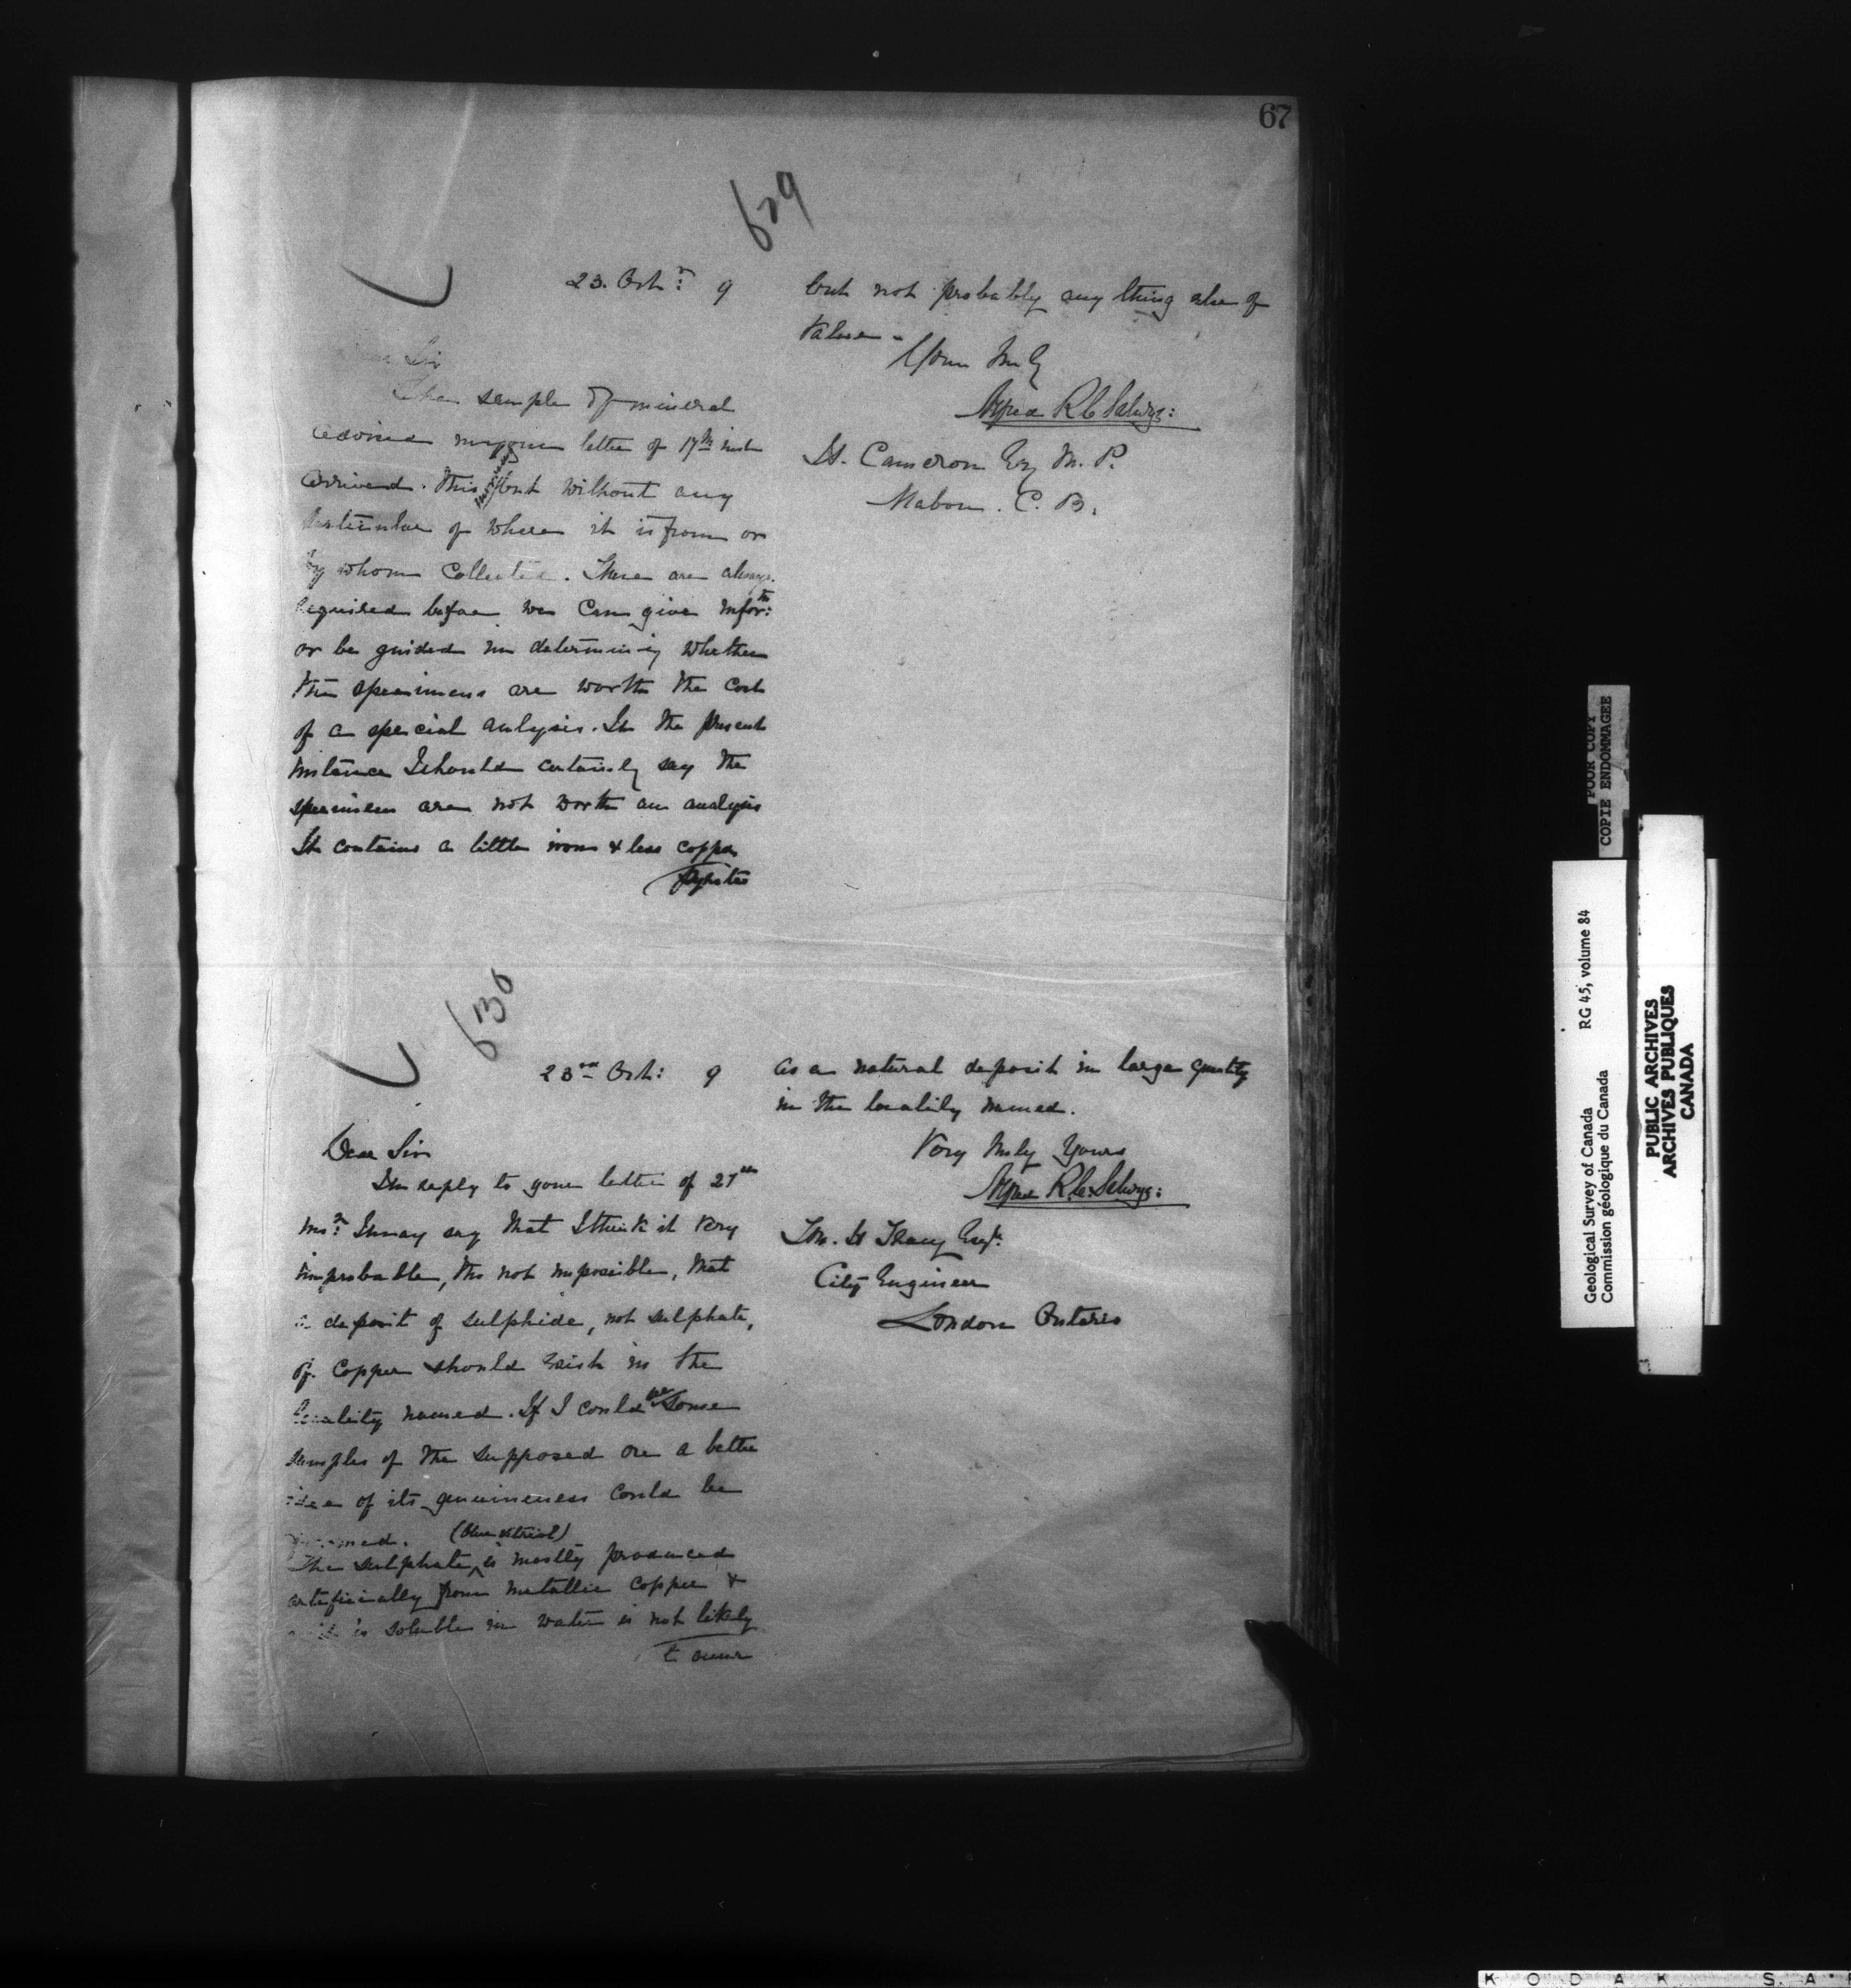 67
629
23. Octr: 9
Dear Sir
The sample of mineral
advised in your letter of 17th inst
arrived. this but without any
particular of where it is from or
by whom collected. These are always
required before we can give infortn:
or be guided in determining whether
the specimens are worth the cost
of a special analysis. In the present
instance I should certainly say the
specimen are not worth an analysis
It contains a little iron & less copper
Pyrites
but not probably any thing else of
Value -
Yours truly
Alfred R C Selwyn:
Cameron Esq M. P.
Mabou. C. B.
630
23rd Oct: 9
Dear Sir
In reply to your letter of 21st
I may say that I think it very
improbable, tho not impossible, that
a deposit of sulphide, not sulphate,
of copper should exist in the
locality named. If I could see some
samples of the supposed ore a better
idea of its genuineness could be
formed. (blue vitriol)
The sulphate ^ is mostly produced
artificially from metallic copper &
as it is soluble in water is not likely
to occur
as a natural deposit in large quantity
in the locality named.
Very truly Yours
Alfred R. C. Selwyn:
Tracy Esqr.
City Engineer
London Ontario
POOR COPY
COPIE ENDOMMAGEE
Geological Survey of Canada RG 45, volume 84
Commission géologique du Canada
PUBLIC ARCHIVES
ARCHIVES PUBLIQUES
CANADA
KODAK S.A.